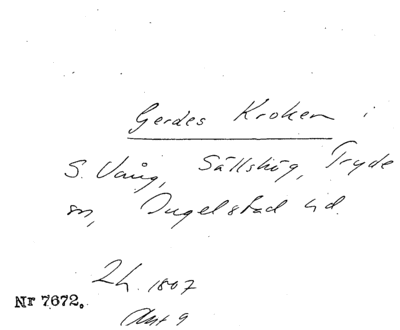 Gerdes Kroken i
S. Vång, Sällshög, Tryde
sn, Ingelstad hd.
2h. 1807
Nr 7672.
Akt 9